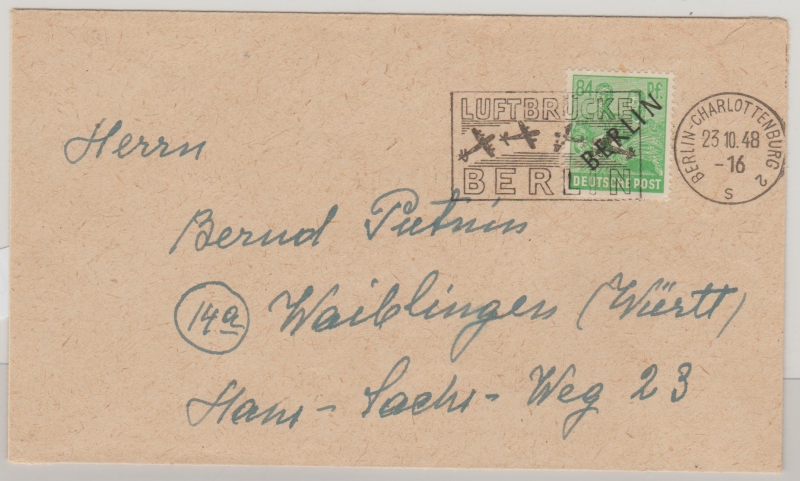 LUFTBRÜCKE
BERLIN
84 Pf.
BERLIN
DEUTSCHE POST
BERLIN-CHARLOTTENBURG 2
23.10.48
-16
s
Herrn
Bernd
14a Waiblingen (Württ)
Hans-Sachs-Weg 23